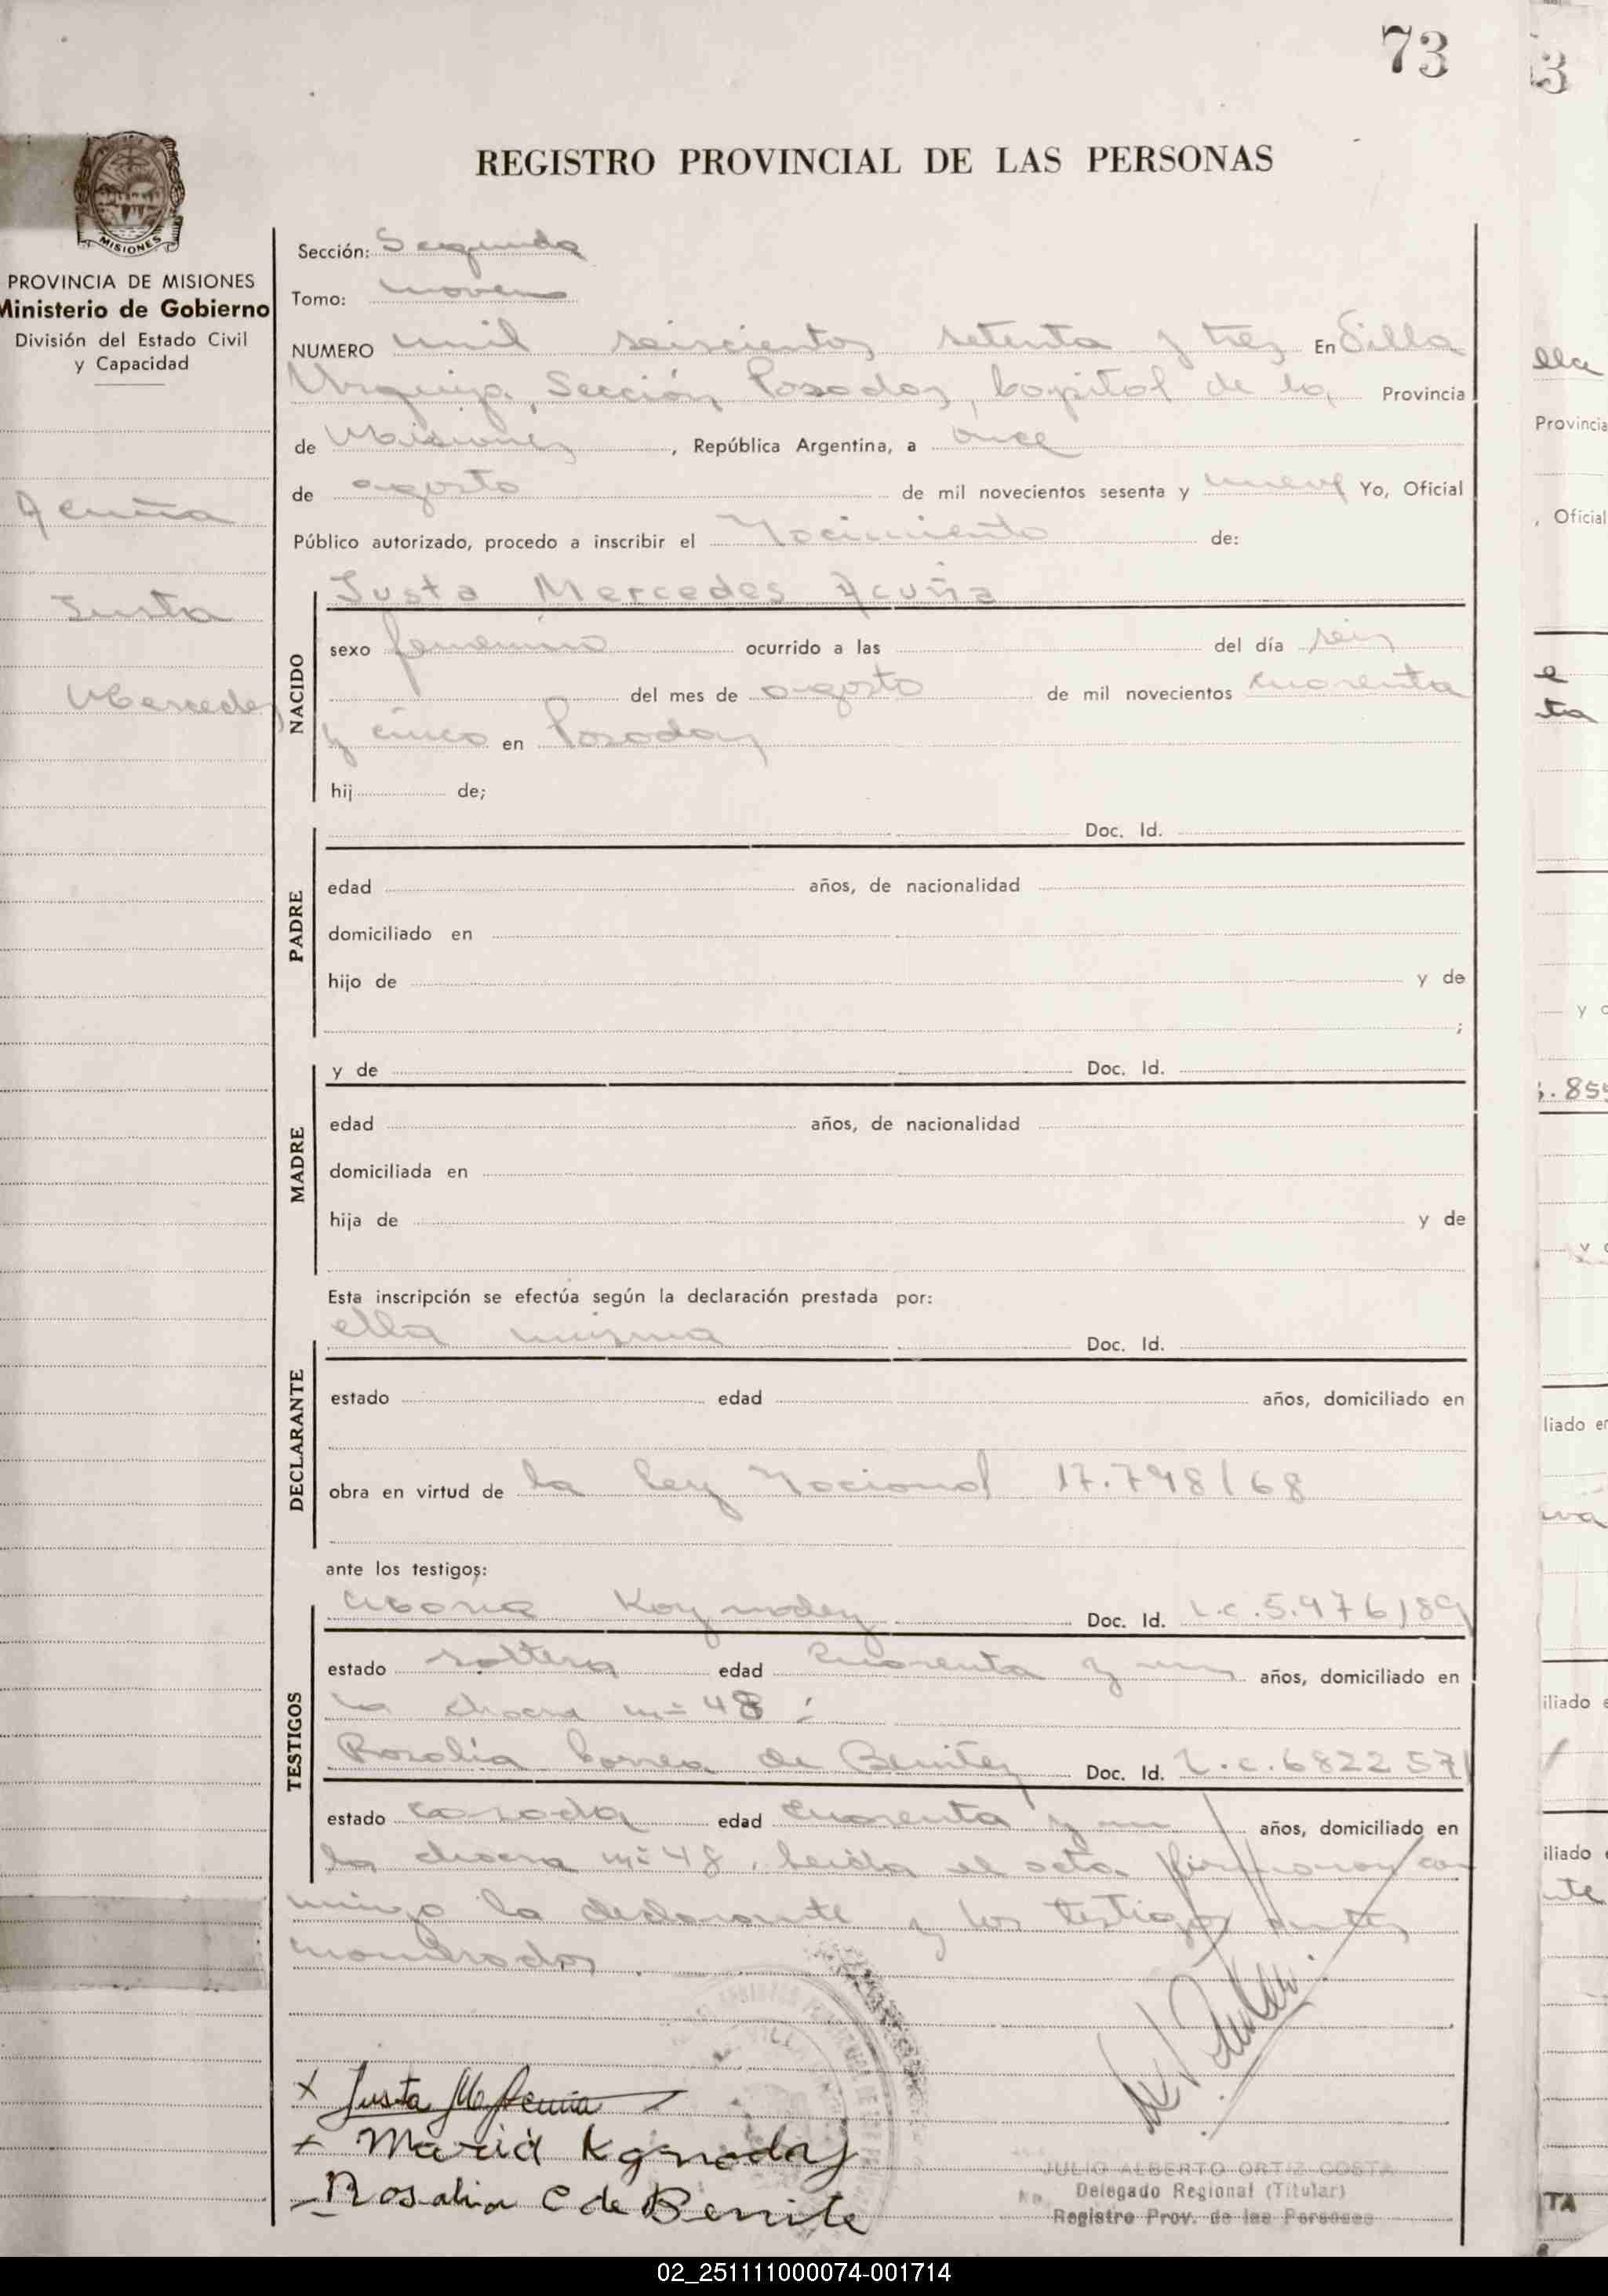 73
REGISTRO PROVINCIAL DE LAS PERSONAS
MISIONES
PROVINCIA DE MISIONES
Ministerio de Gobierno
División del Estado Civil
y Capacidad
Acuña
Justa
Mercedes
Sección: Segunda
Tomo: noveno
NUMERO mil seiscientos setenta y tres En Villa
Urquiza, Sección Posadas, Capital de la Provincia
de Misiones, República Argentina, a once
de agosto de mil novecientos sesenta y nueve Yo, Oficial
Público autorizado, procedo a inscribir el Nacimiento de:
NACIDO
Justa Mercedes Acuña
sexo femenino ocurrido a las del día seis
del mes de agosto de mil novecientos cuarenta
y cinco en Posadas
hij de;
PADRE
Doc. Id.
edad años, de nacionalidad
domiciliado en
hijo de y de
;
MADRE
y de Doc. Id.
edad años, de nacionalidad
domiciliada en
hija de y de
Esta inscripción se efectúa según la declaración prestada por:
DECLARANTE
ella misma Doc. Id.
estado edad años, domiciliado en
obra en virtud de la ley Nacional 17.798/68
ante los testigos:
TESTIGOS
María Doc. Id. L.C.5.976189
estado soltera edad cuarenta y un años, domiciliado en
la chacra nº 48 ;
Rosalía Correa de Benitez Doc. Id. L.C.6822571
estado casada edad cuarenta y un años, domiciliado en
la chacra nº 48. Leída el acta firmaron con
migo la declarante y los testigos antes
nombrados.
Justa M Acuña
María
Rosalia C de Benite
JULIO ALBERTO ORTIZ COSTA
Delegado Regional (Titular)
Registro Prov. de las Personas
02_251111000074-001714